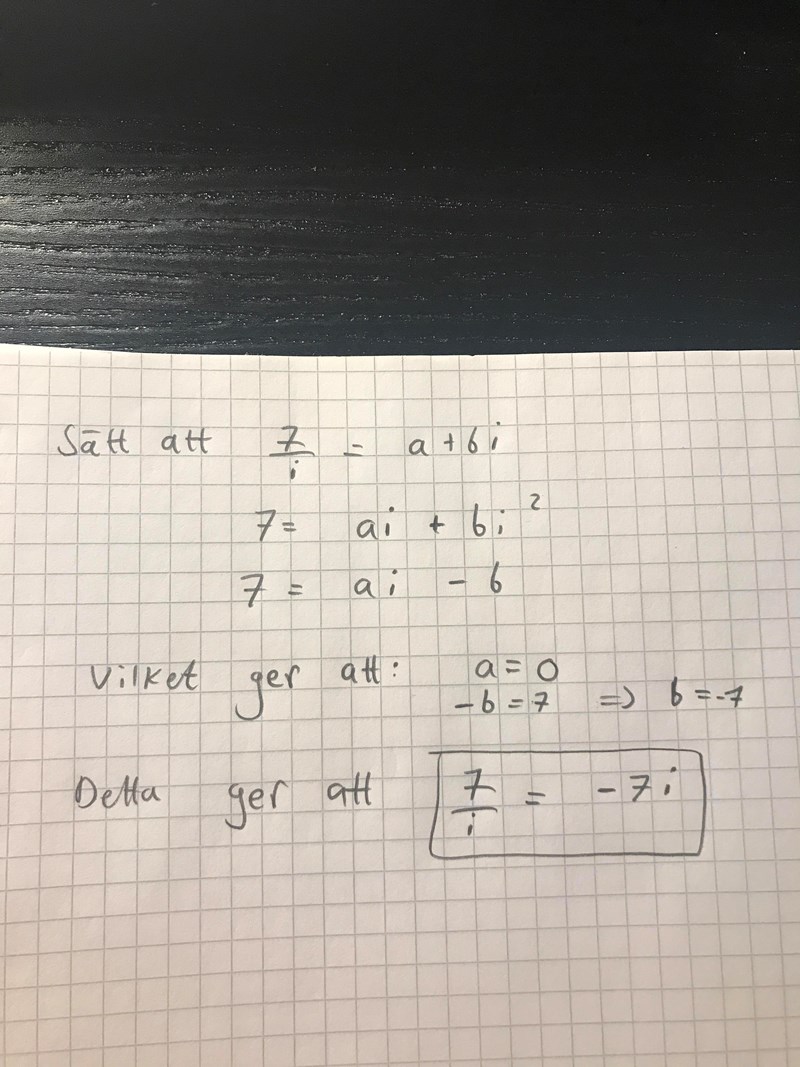 Sätt att 7/i = a + bi
7 = ai + bi²
7 = ai - b
Vilket ger att: a = 0
-b = 7 => b = -7
Detta ger att 7/i = -7i